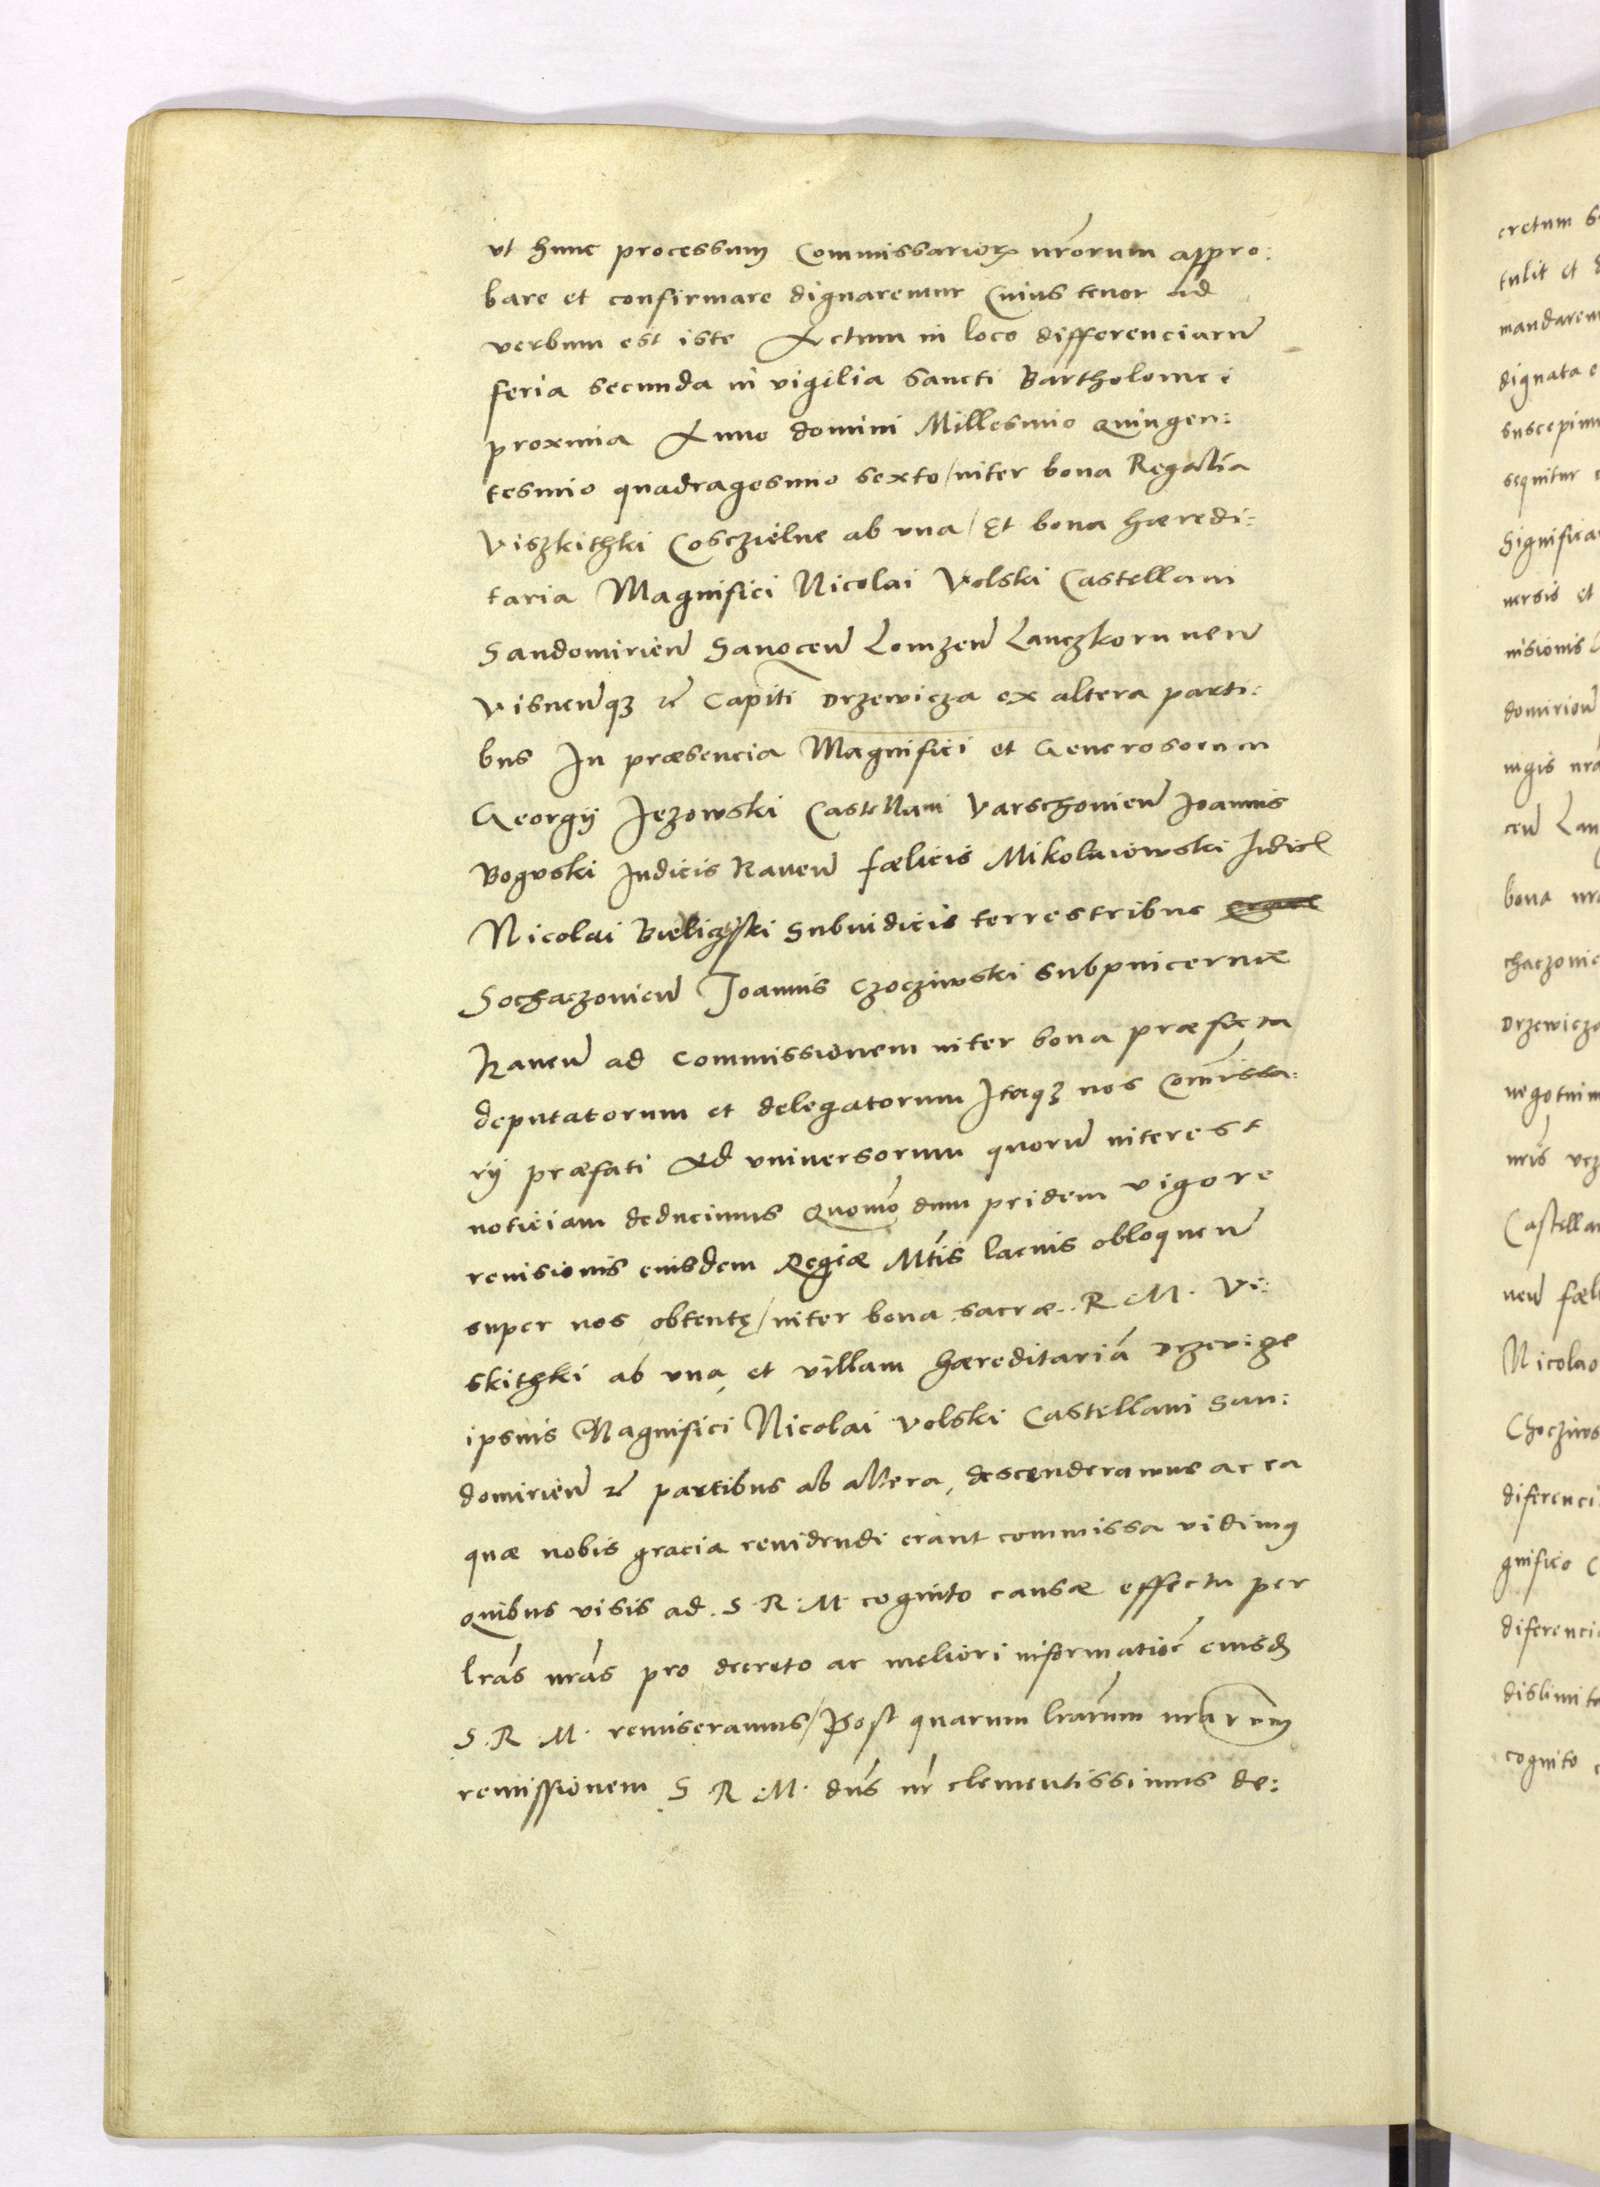 ut hunc processum Commissarior[um] nr̃orum appro:
bare et confirmare dignaremur Cuius tenor ad
verbum est iste Actum in loco differenciarũ
feria secunda in vigilia sancti Bartholomei
proxima Anno domini Millesimo Quingen:
tesimo quadragesimo sexto / inter bona Regalia
Viszkithki Cosczielne ab una / Et bona hæredi:
taria Magnifici Nicolai Volski Castellani
Sandomirien̄ Sanocen̄ Lomzen̄ Lanczkorunen̄
Visnen̄q₃ &c̃ Capiti Drzewicza ex altera parti:
bus In præsencia Magnifici et Generosorum
Georgij Jezowski Castellani Varschovien̄ Joannis
Boguski Judicis Raven̄ fœlicis Mikolaiowski Judic̃
Nicolai Bieliczski Subiudicis terrestribus
Sochaczovien̄ Joannis Czocziwski subpincernæ
Raven̄ ad commissionem inter bona præfacta
deputatorum et delegatorum Itaq₃ nos Com̄issa:
rij præfati Ad universorum quorũ interest
noticiam deducimus Quom̄o dum pridem vigore
revisionis eiusdem Regiæ Mt̃is lacius obloquen̄
super nos obtentę / inter bona sacræ R. M. Vi:
skithki ab una et villam hæreditariã Drzevicze
ipsius Magnifici Nicolai Volski Castellani San:
domirien̄ &c̃ partibus ab altera, descenderamus ac ea
quæ nobis gracia revidendi erant commissa vidimus
Quibus visis ad S. R. M. cognito causæ effectu per
lr̃as nr̃as pro decreto ac meliori informatiõe eiusd̃
S. R. M. remiseramus / Post quarum lr̃arum nr̃arum
remissionem S R M. dñs nr̃ clementissimus de:
cretum
tulit et
dignata
sequitur
nisionis
domirien̄
bona
Drzewicz
Castellan
Nicolao
diferenci
gnifico
diferenci
dislimit
cognito